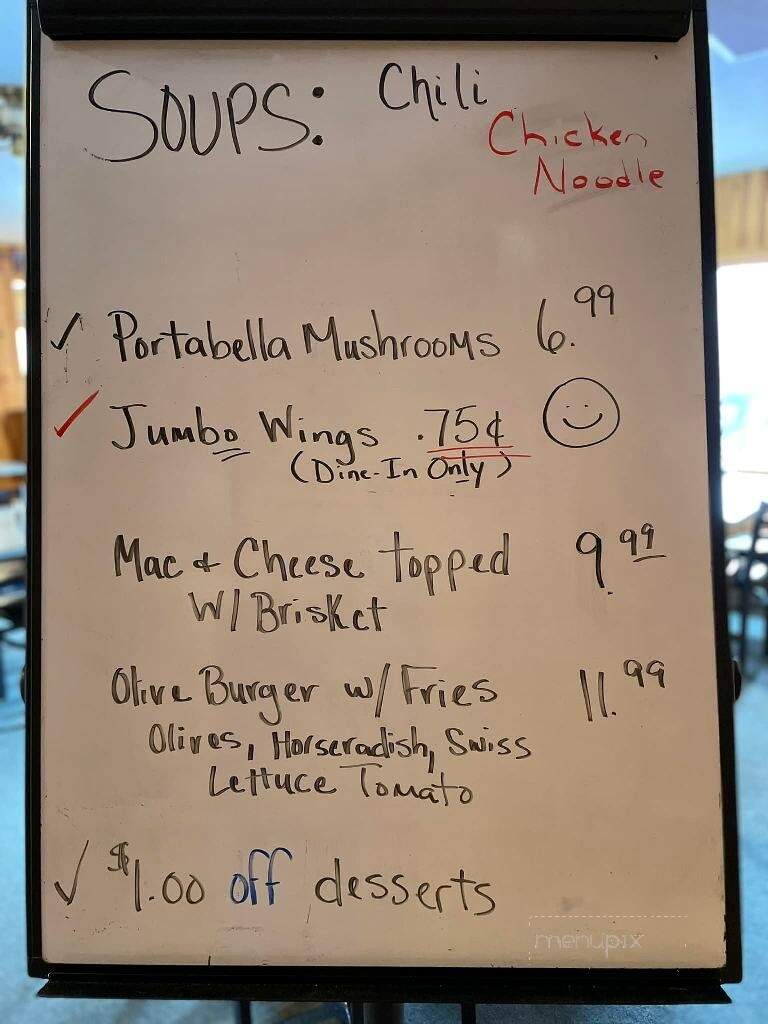 SOUPS: Chili
Chicken
Noodle
✓ Portabella Mushrooms 6.99
✓ Jumbo Wings .75¢
(Dine-In Only)
Mac & Cheese topped 9.99
W/ Brisket
Olive Burger w/ Fries 11.99
Olives, Horseradish, Swiss
Lettuce Tomato
✓ $1.00 off desserts
menupix